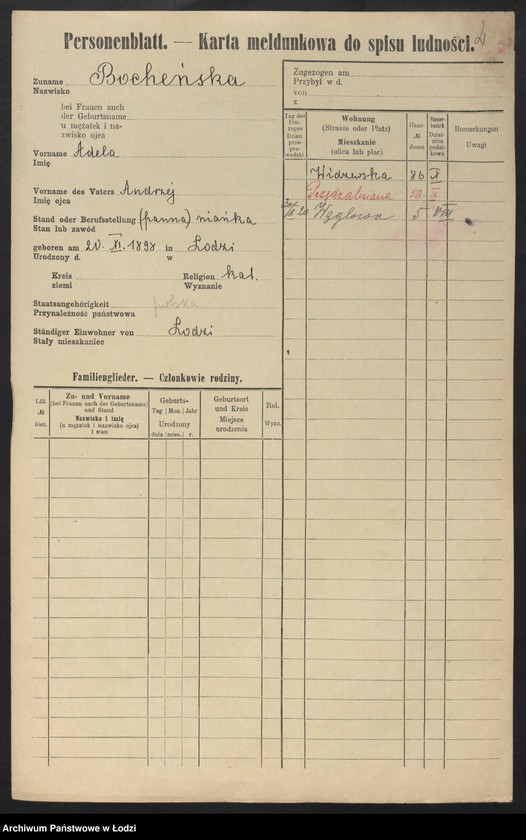 Personenblatt. — Karta meldunkowa do spisu ludności.
2
Zuname Bocheńska
Nazwisko
bei Frauen auch
der Geburtsname
u mężatek i na-
zwisko ojca
Vorname Adela
Imię
Vorname des Vaters Andrzej
Imię ojca
Stand oder Berufsstellung (panna) niańka
Stan lub zawód
geboren am 20. XI. 1898 in Łodzi
Urodzony d. w
Kreis Religion kat.
ziemi Wyznanie
Staatsangehörigkeit polska
Przynależność państwowa
Ständiger Einwohner von Łodzi
Stały mieszkaniec
Familienglieder. — Członkowie rodziny.
Lfd. № bież.
Zu- und Vorname
(bei Frauen auch der Geburtsname)
und Stand
Nazwisko i imię
(u mężatek i nazwisko ojca)
i stan
Geburts-
Tag | Mon. | Jahr
Urodzony
dnia | mies. | r.
Geburtsort
und Kreis
Miejsce
urodzenia
Rel.
Wyzn.
Zugezogen am
Przybył w d.
von
z
Tag des
Um-
zuges
Dzień
prze-
prowadzki
Wohnung
(Strasse oder Platz)
Mieszkanie
(ulica lub plac)
Haus
№
domu
Steuer-
bezirk
Dziel-
nica
podat-
kowa
Bemerkungen
Uwagi
Widzewska 86 X
50 IX
20 Węglowa 5 VIII
Archiwum Państwowe w Łodzi